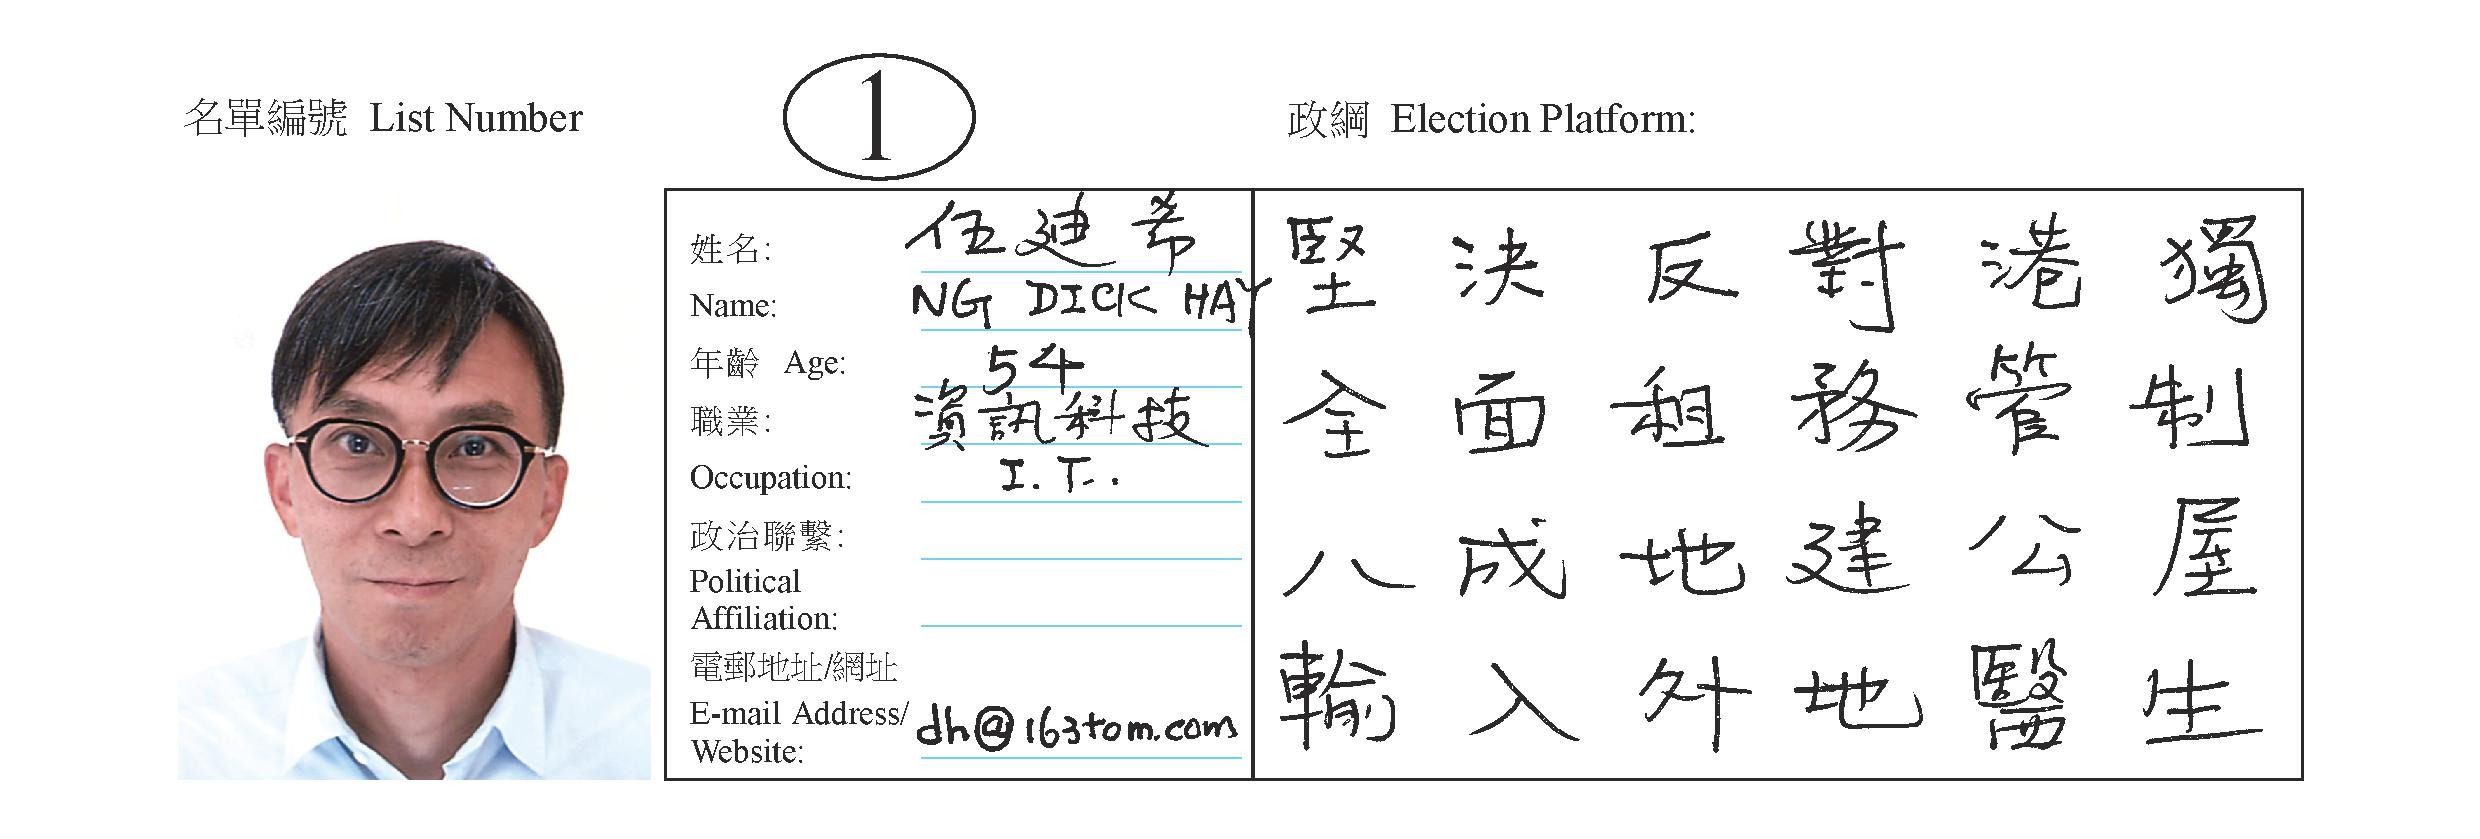 名單編號 List Number
1
政綱 Election Platform:
姓名: 伍廸希
Name: NG DICK HAY
年齡 Age: 54
職業: 資訊科技
Occupation: I.T.
政治聯繫:
Political
Affiliation:
電郵地址/網址
E-mail Address/
Website: dh@163tom.com
堅決反對港獨
全面租務管制
八成地建公屋
輸入外地醫生